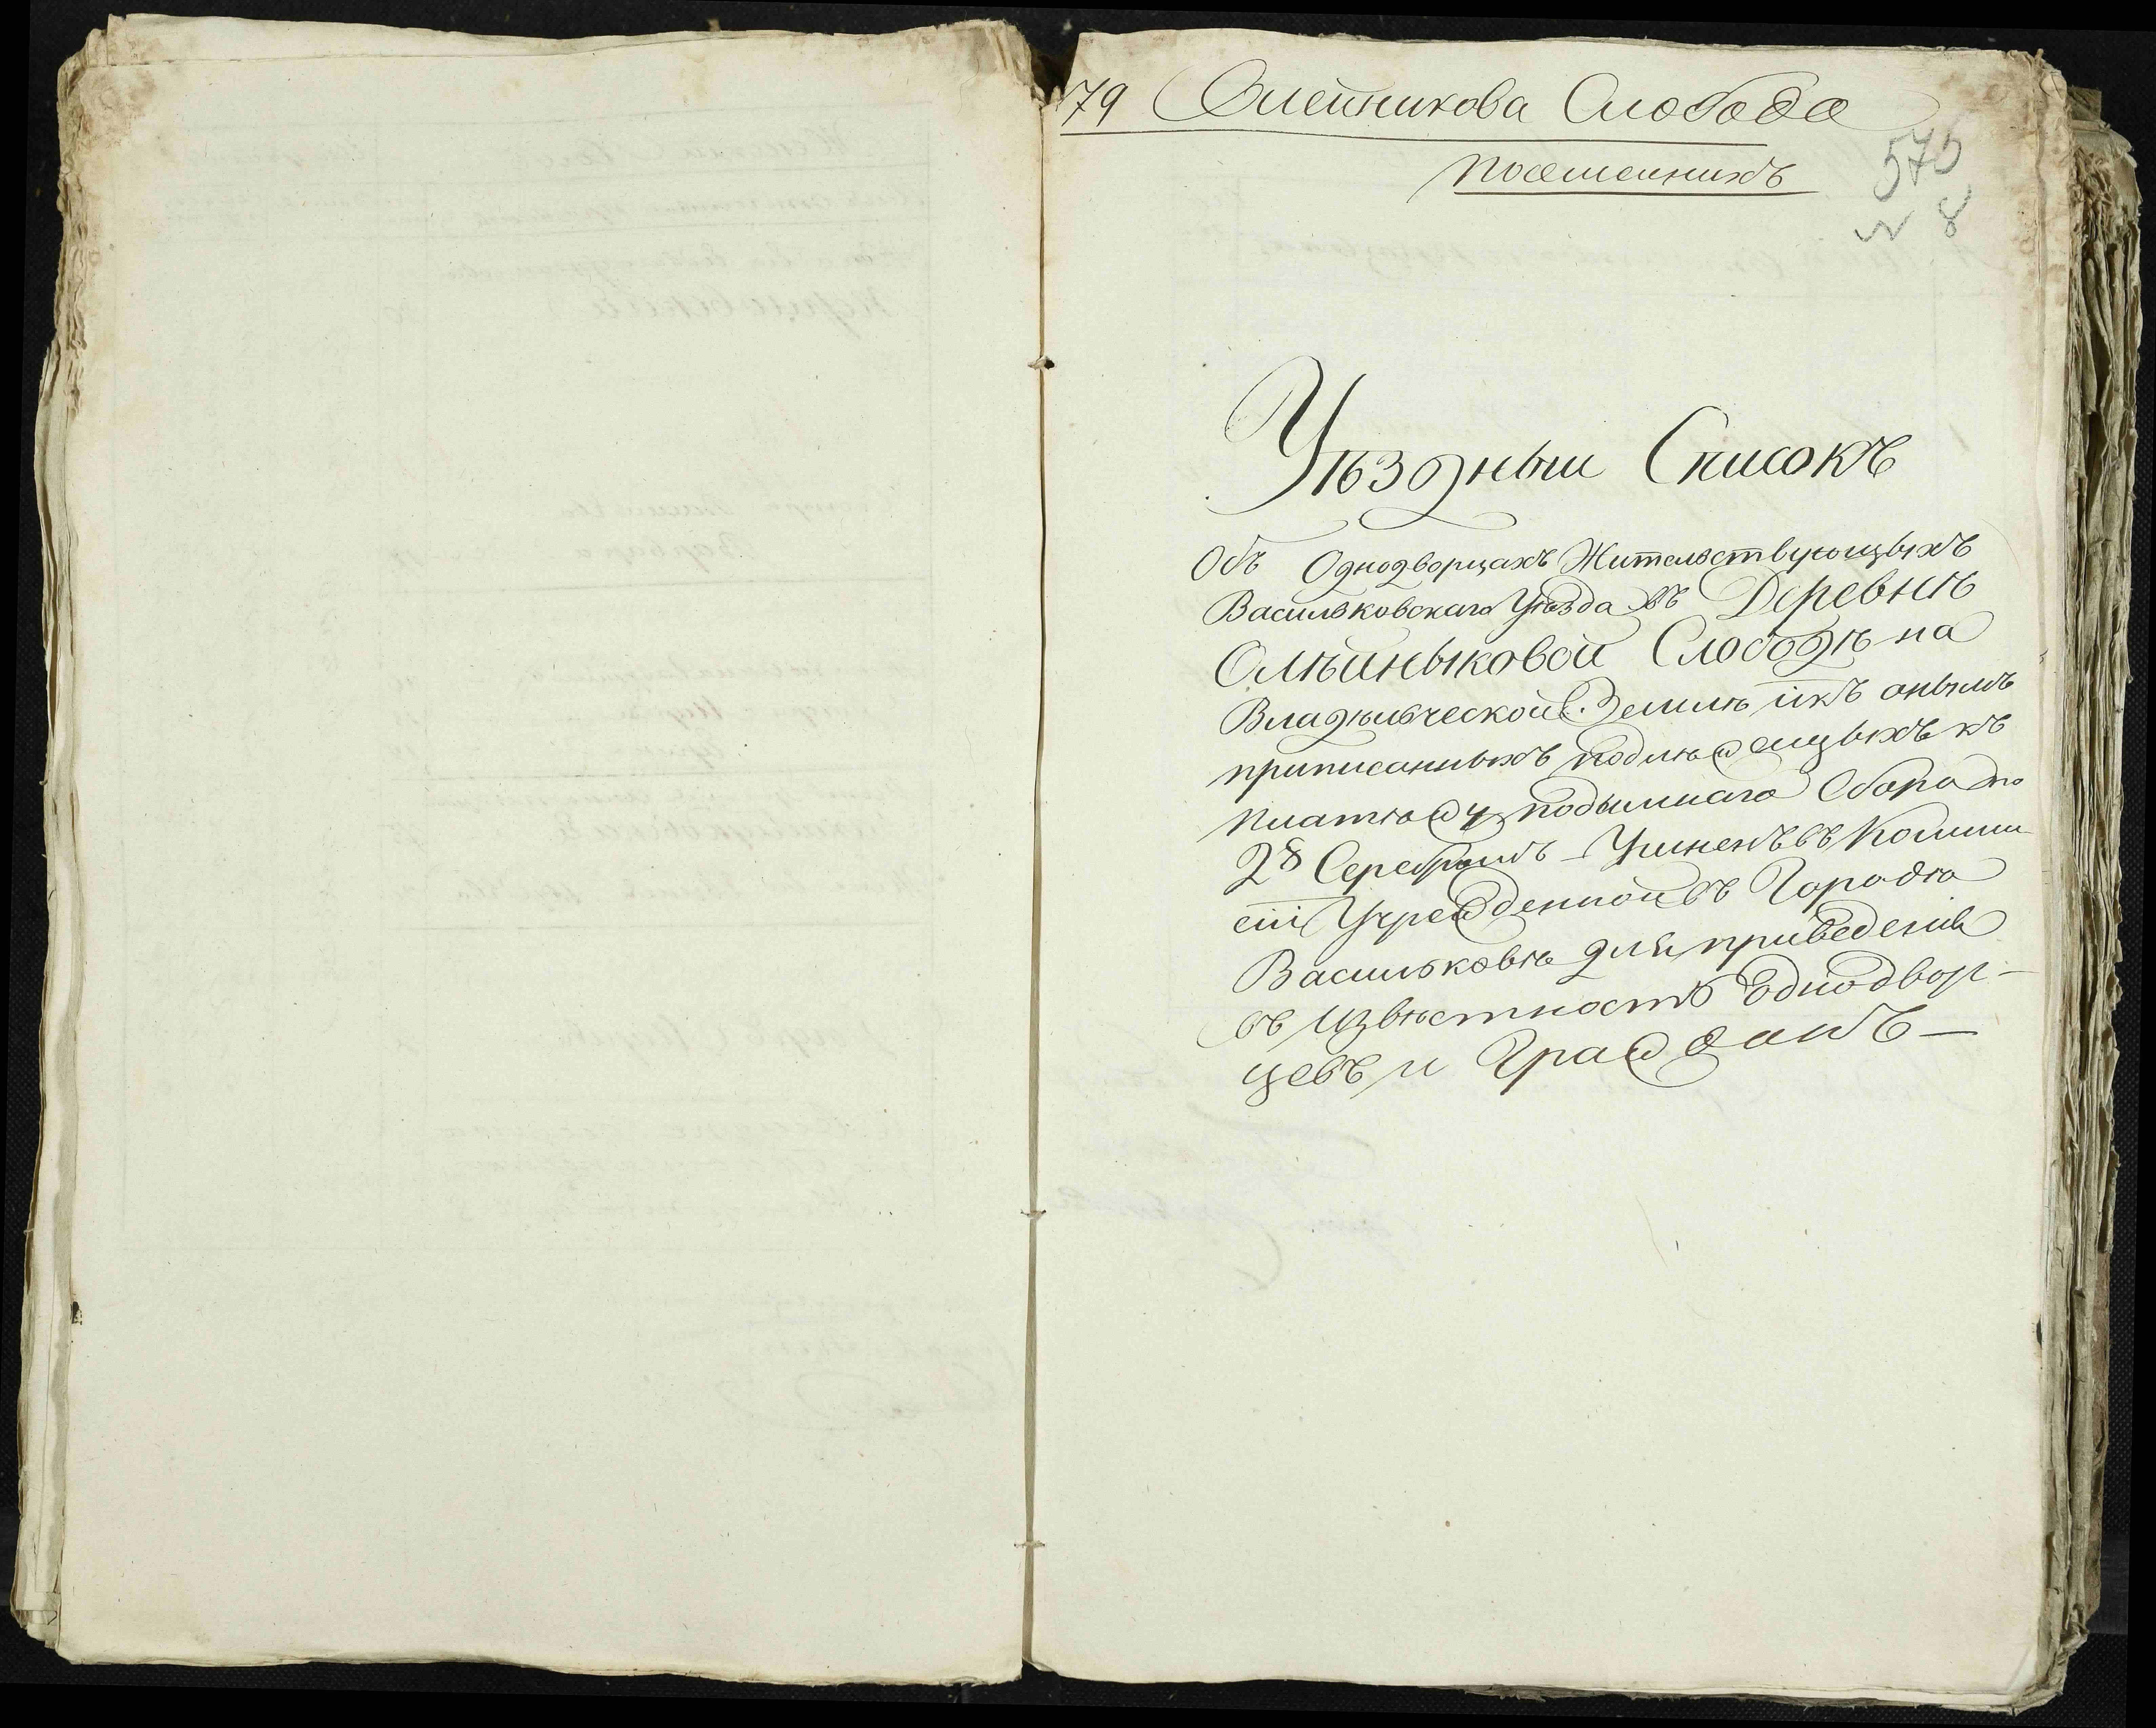 79 Олейникова Слобода
575
№ 8
Уѣздныи Списокъ
Объ Однодворцахъ Жительствующыхъ
Васильковскаго Уѣзда въ Деревнѣ
Олѣйныковой Слободѣ на
Владѣльческой Землѣ ікъ онымъ
приписанныхъ подлѣжащыхъ къ
платѣжу подымнаго Сбора по
2 Серебромъ – Учиненъ въ Комми
сіи Учрежденной въ Городѣ
Васильковѣ для приведенія
въ Извѣстность Однодвор-
цевъ и Гражданъ –